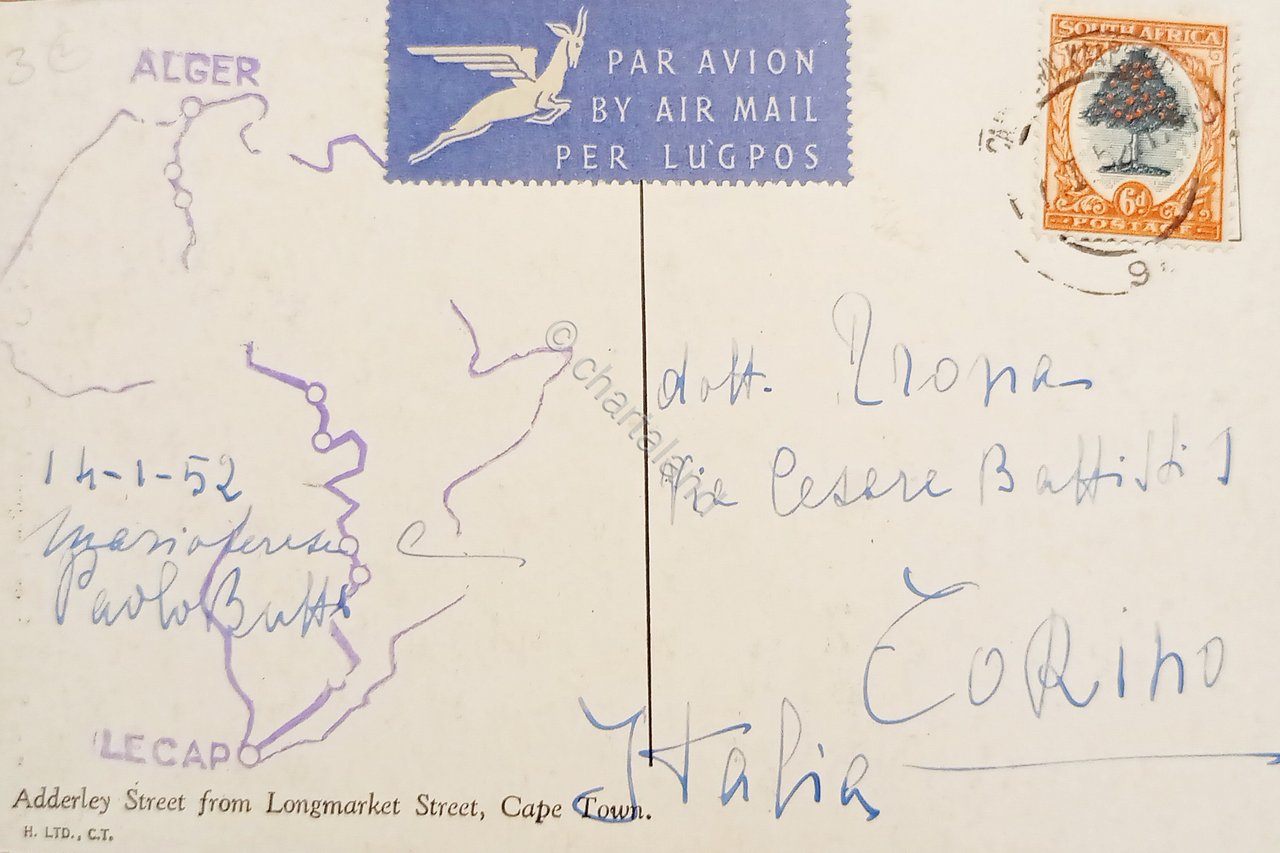 ALGER
PAR AVION
BY AIR MAIL
PER LUGPOS
SOUTH AFRICA
6d
POSTAGE
© chartaland
dott.
Via Cesare Battisti 1
Torino
Italia
14-1-52
Mariateresa
Paolo Butti
LE CAP
Adderley Street from Longmarket Street, Cape Town.
H. LTD., C.T.